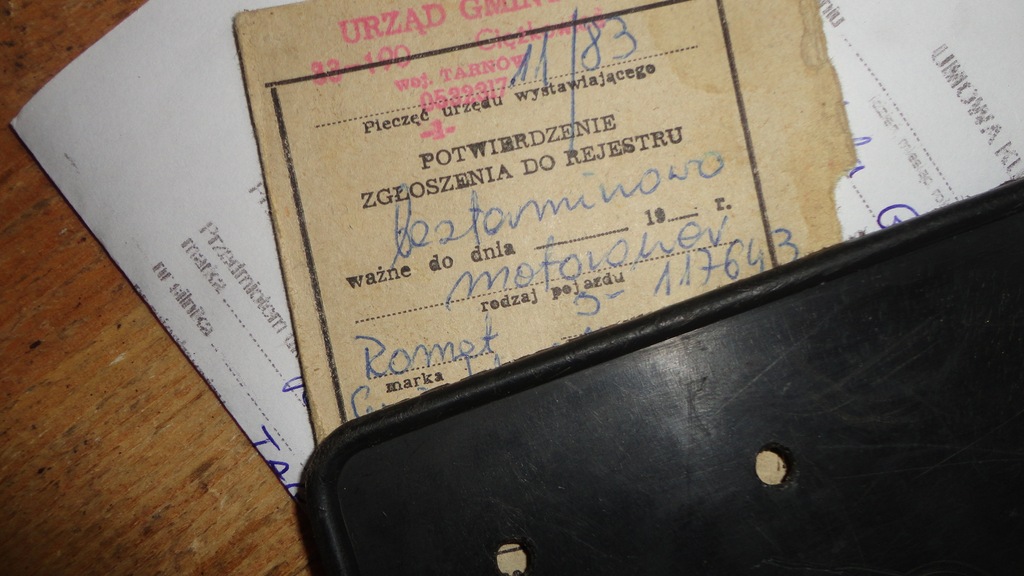 URZĄD GMINY
33-100
woj. TARNÓW
11/83
Pieczęć urzędu wystawiającego
-1-
POTWIERDZENIE
ZGŁOSZENIA DO REJESTRU
bestarminowo
ważne do dnia 19 r.
motorower
rodzaj pojazdu
S- 117643
Romet
marka
Przedmiotem
marka
nr silnika
UMOWA